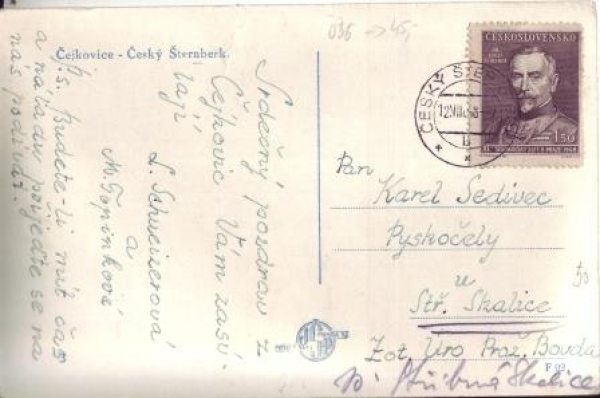 036 → 45,-
Čejkovice - Český Šternberk.
Srdečný pozdrav z
Čejkovic Vám zasí-
lají
L. Schweizerová
a
M. Topinková
P.S. Budete-li mít čas
a náladu přijeďte se na
nás podívat.
ČESKOSLOVENSKO
1.50
ČESKÝ ŠTER
Pan
Karel Šedivec
Pyskočely
u
Stř. Skalice
Zot. Úro Praž. Bouda
p. Stříbrná Skalice
F 92